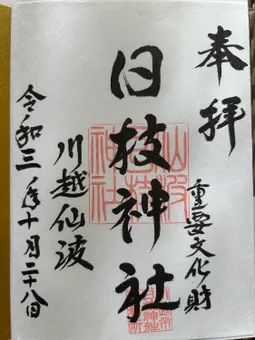 奉拝
重要文化財
日枝神社
川越仙波
令和三年十月二十八日